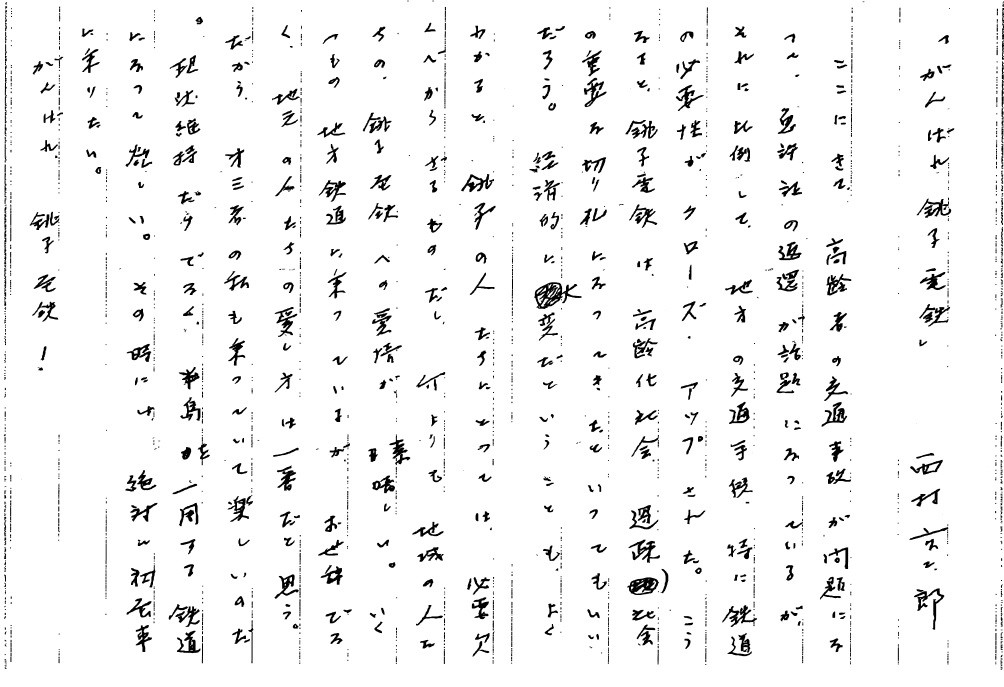 「がんばれ 銚子電鉄」
西村京太郎
ここにきて、高齢者の交通事故が問題にな
って、免許証の返還が話題になっているが、
それに比例して、地方の交通手段、特に鉄道
の必要性が、クローズ・アップされた。こう
なると、銚子電鉄は、高齢化社会、過疎社会
の重要な切り札になってきたといってもいい
だろう。経済的に大変だということも、よく
わかると、銚子の人たちにとっては、必要欠
くべからざるものだし、何よりも、地域の人た
ちの、銚子電鉄への愛情が、素晴しい。いく
つもの地方鉄道に乗っているが、お世辞でな
く、地元の人たちの愛し方は一番だと思う。
だから、オ三者の私も乗っていて楽しいのだ
。現状維持だけでなく、半島を一周する鉄道
になって欲しい。その時には、絶対に初電車
に乗りたい。
がんばれ、銚子電鉄!